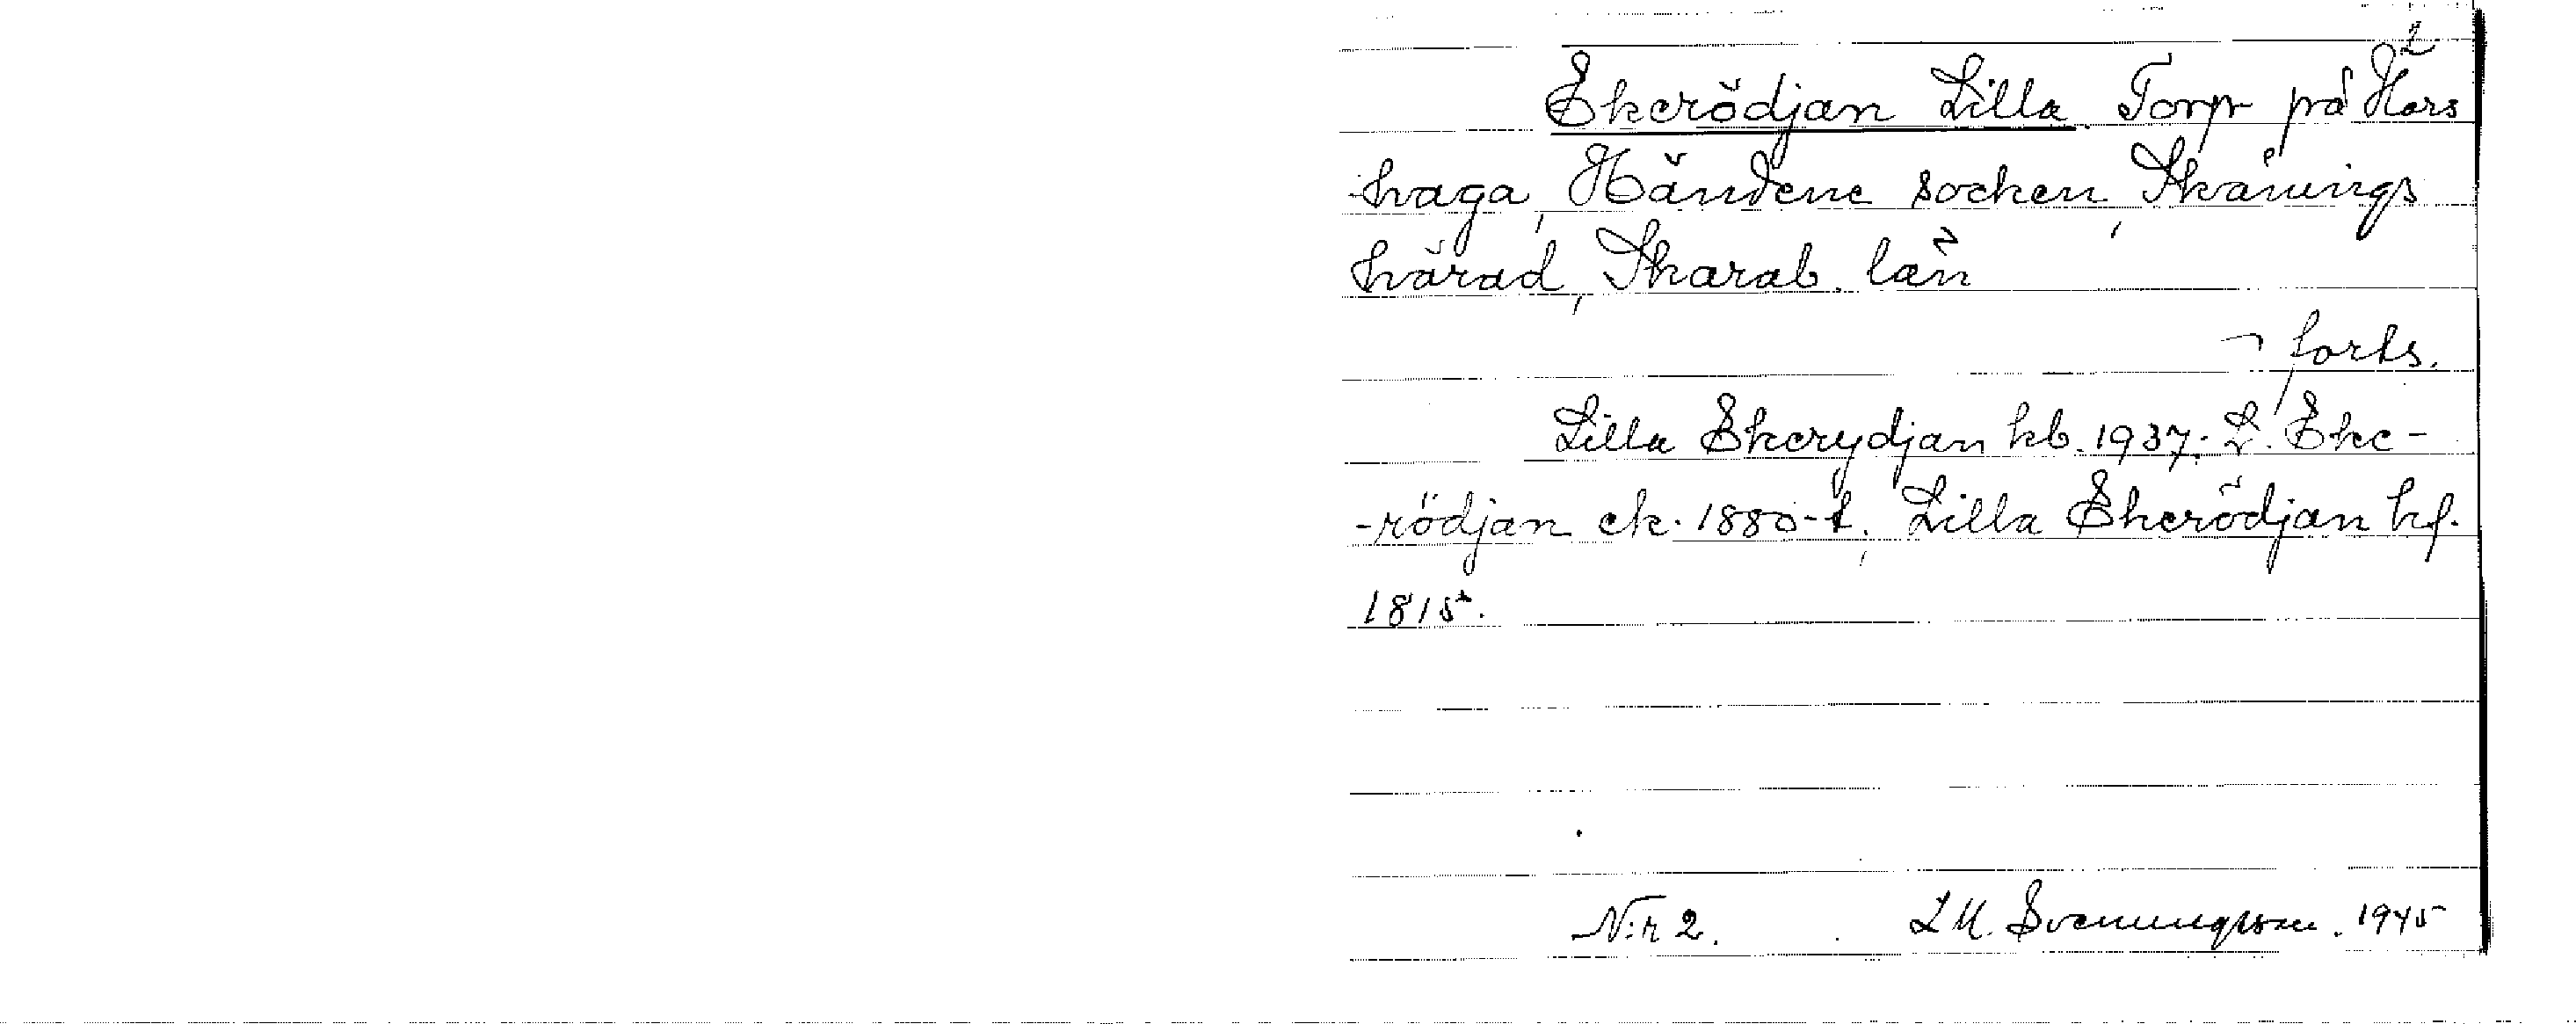 2
Ekerödjan Lilla. Torp på Hors
haga, Händene socken, Skånings
härad, Skarab. län
forts.
Lilla Ekerydjan kb. 1937; L. Eke-
-rödjan ek. 1880-t; Lilla Ekerödjan hf.
1815.
N:r 2. L M. Svenungsson. 1945